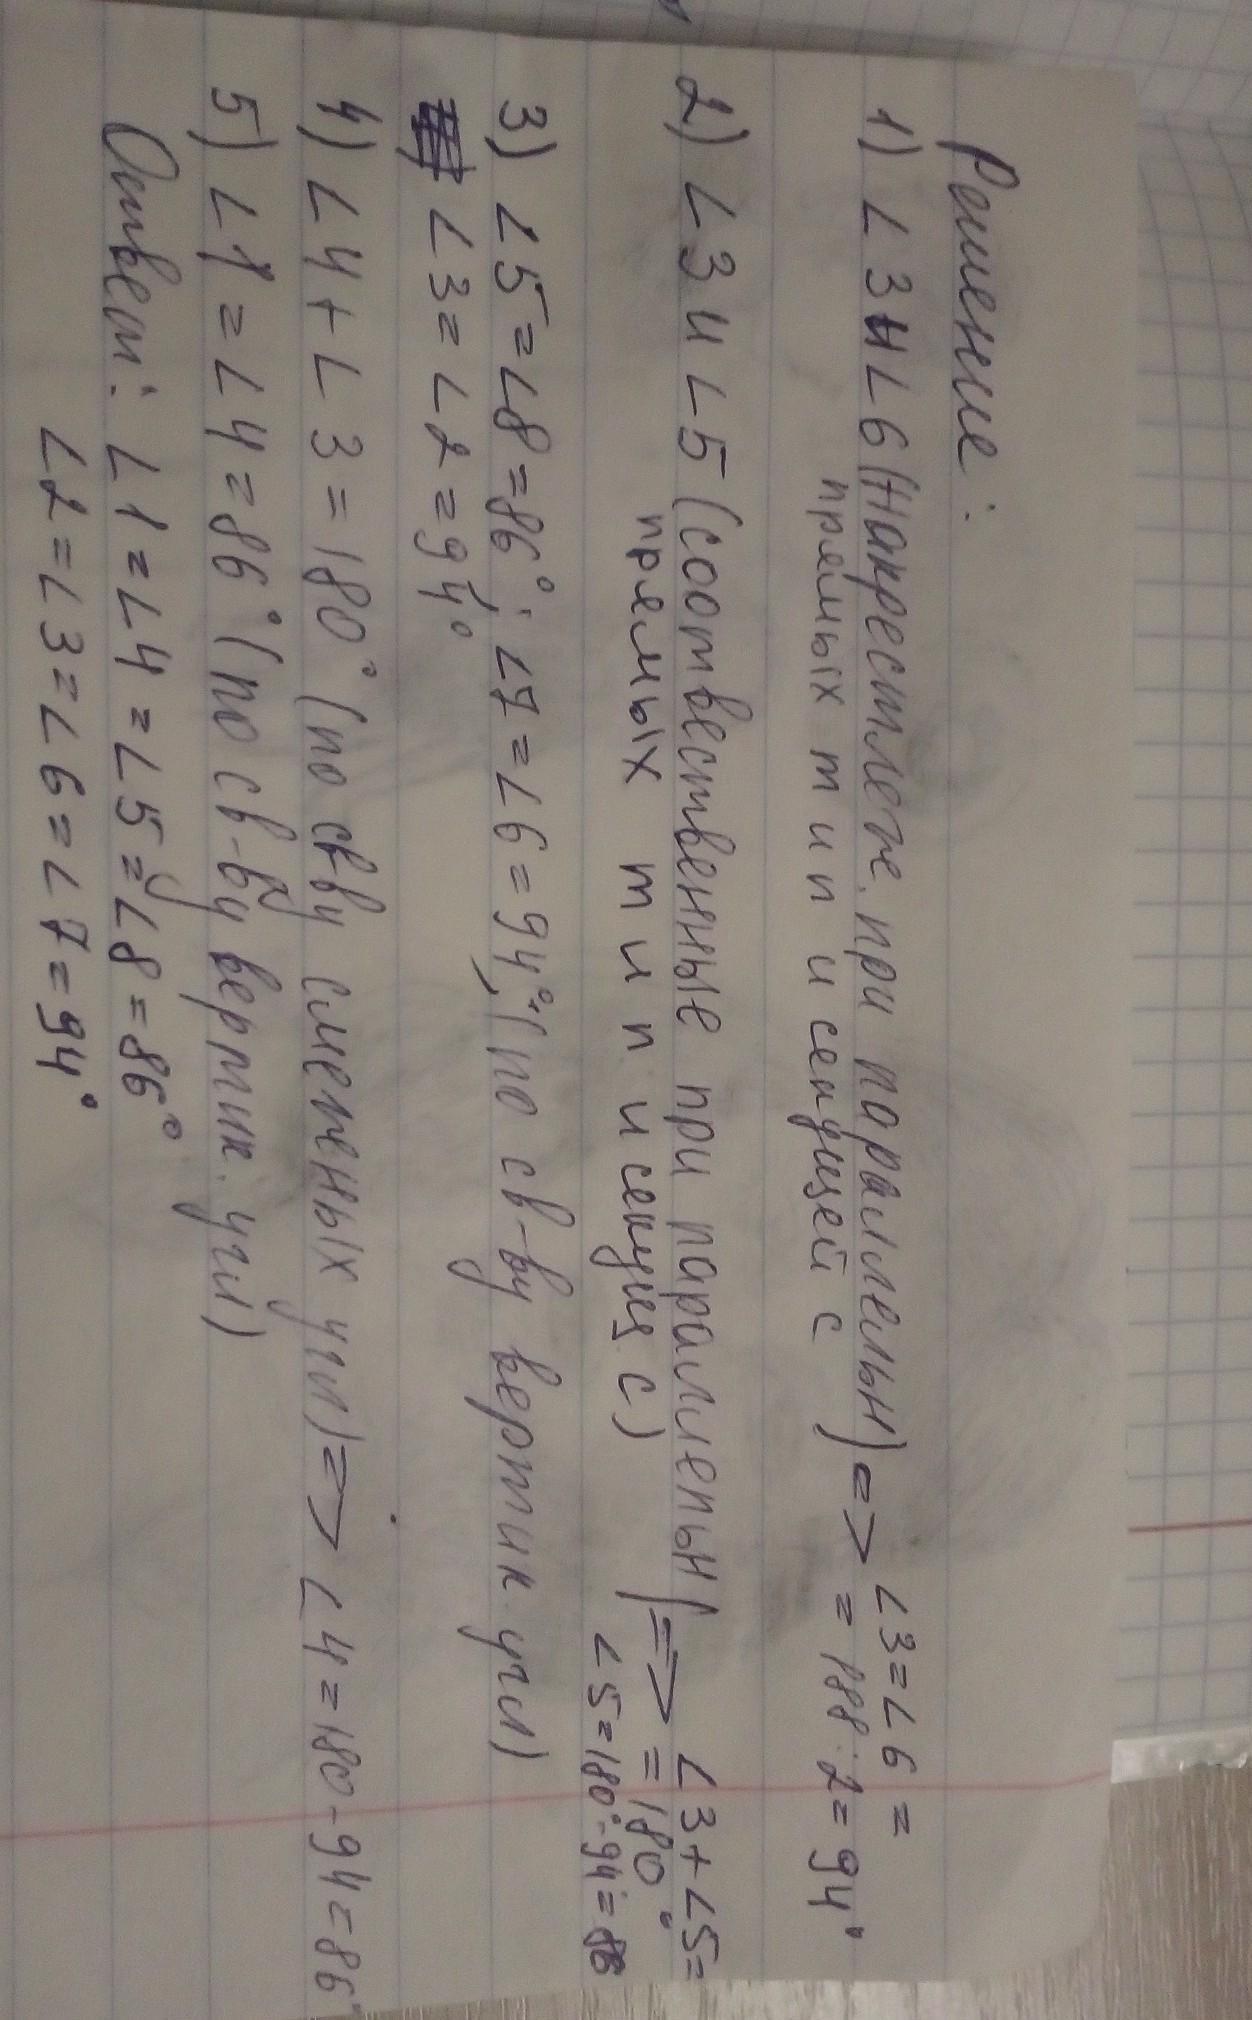 Решение:
1) ∠3 и ∠6 (накрестлеж. при параллельн) => ∠3=∠6=
прямых m и n и секущей c = 188:2=94°
2) ∠3 и ∠5 (соотвественные при параллельн) => ∠3+∠5=
прямых m и n и секущ. c) =180°
∠5=180°-94°=86
3) ∠5=∠8=86°; ∠7=∠6=94°, (по св-ву вертик угл)
∠3=∠2=94°
4) ∠4+∠3=180° (по св-ву смежных угл) => ∠4=180-94=86°
5) ∠1=∠4=86° (по св-ву вертик. угл)
Ответ: ∠1=∠4=∠5=∠8=86°
∠2=∠3=∠6=∠7=94°